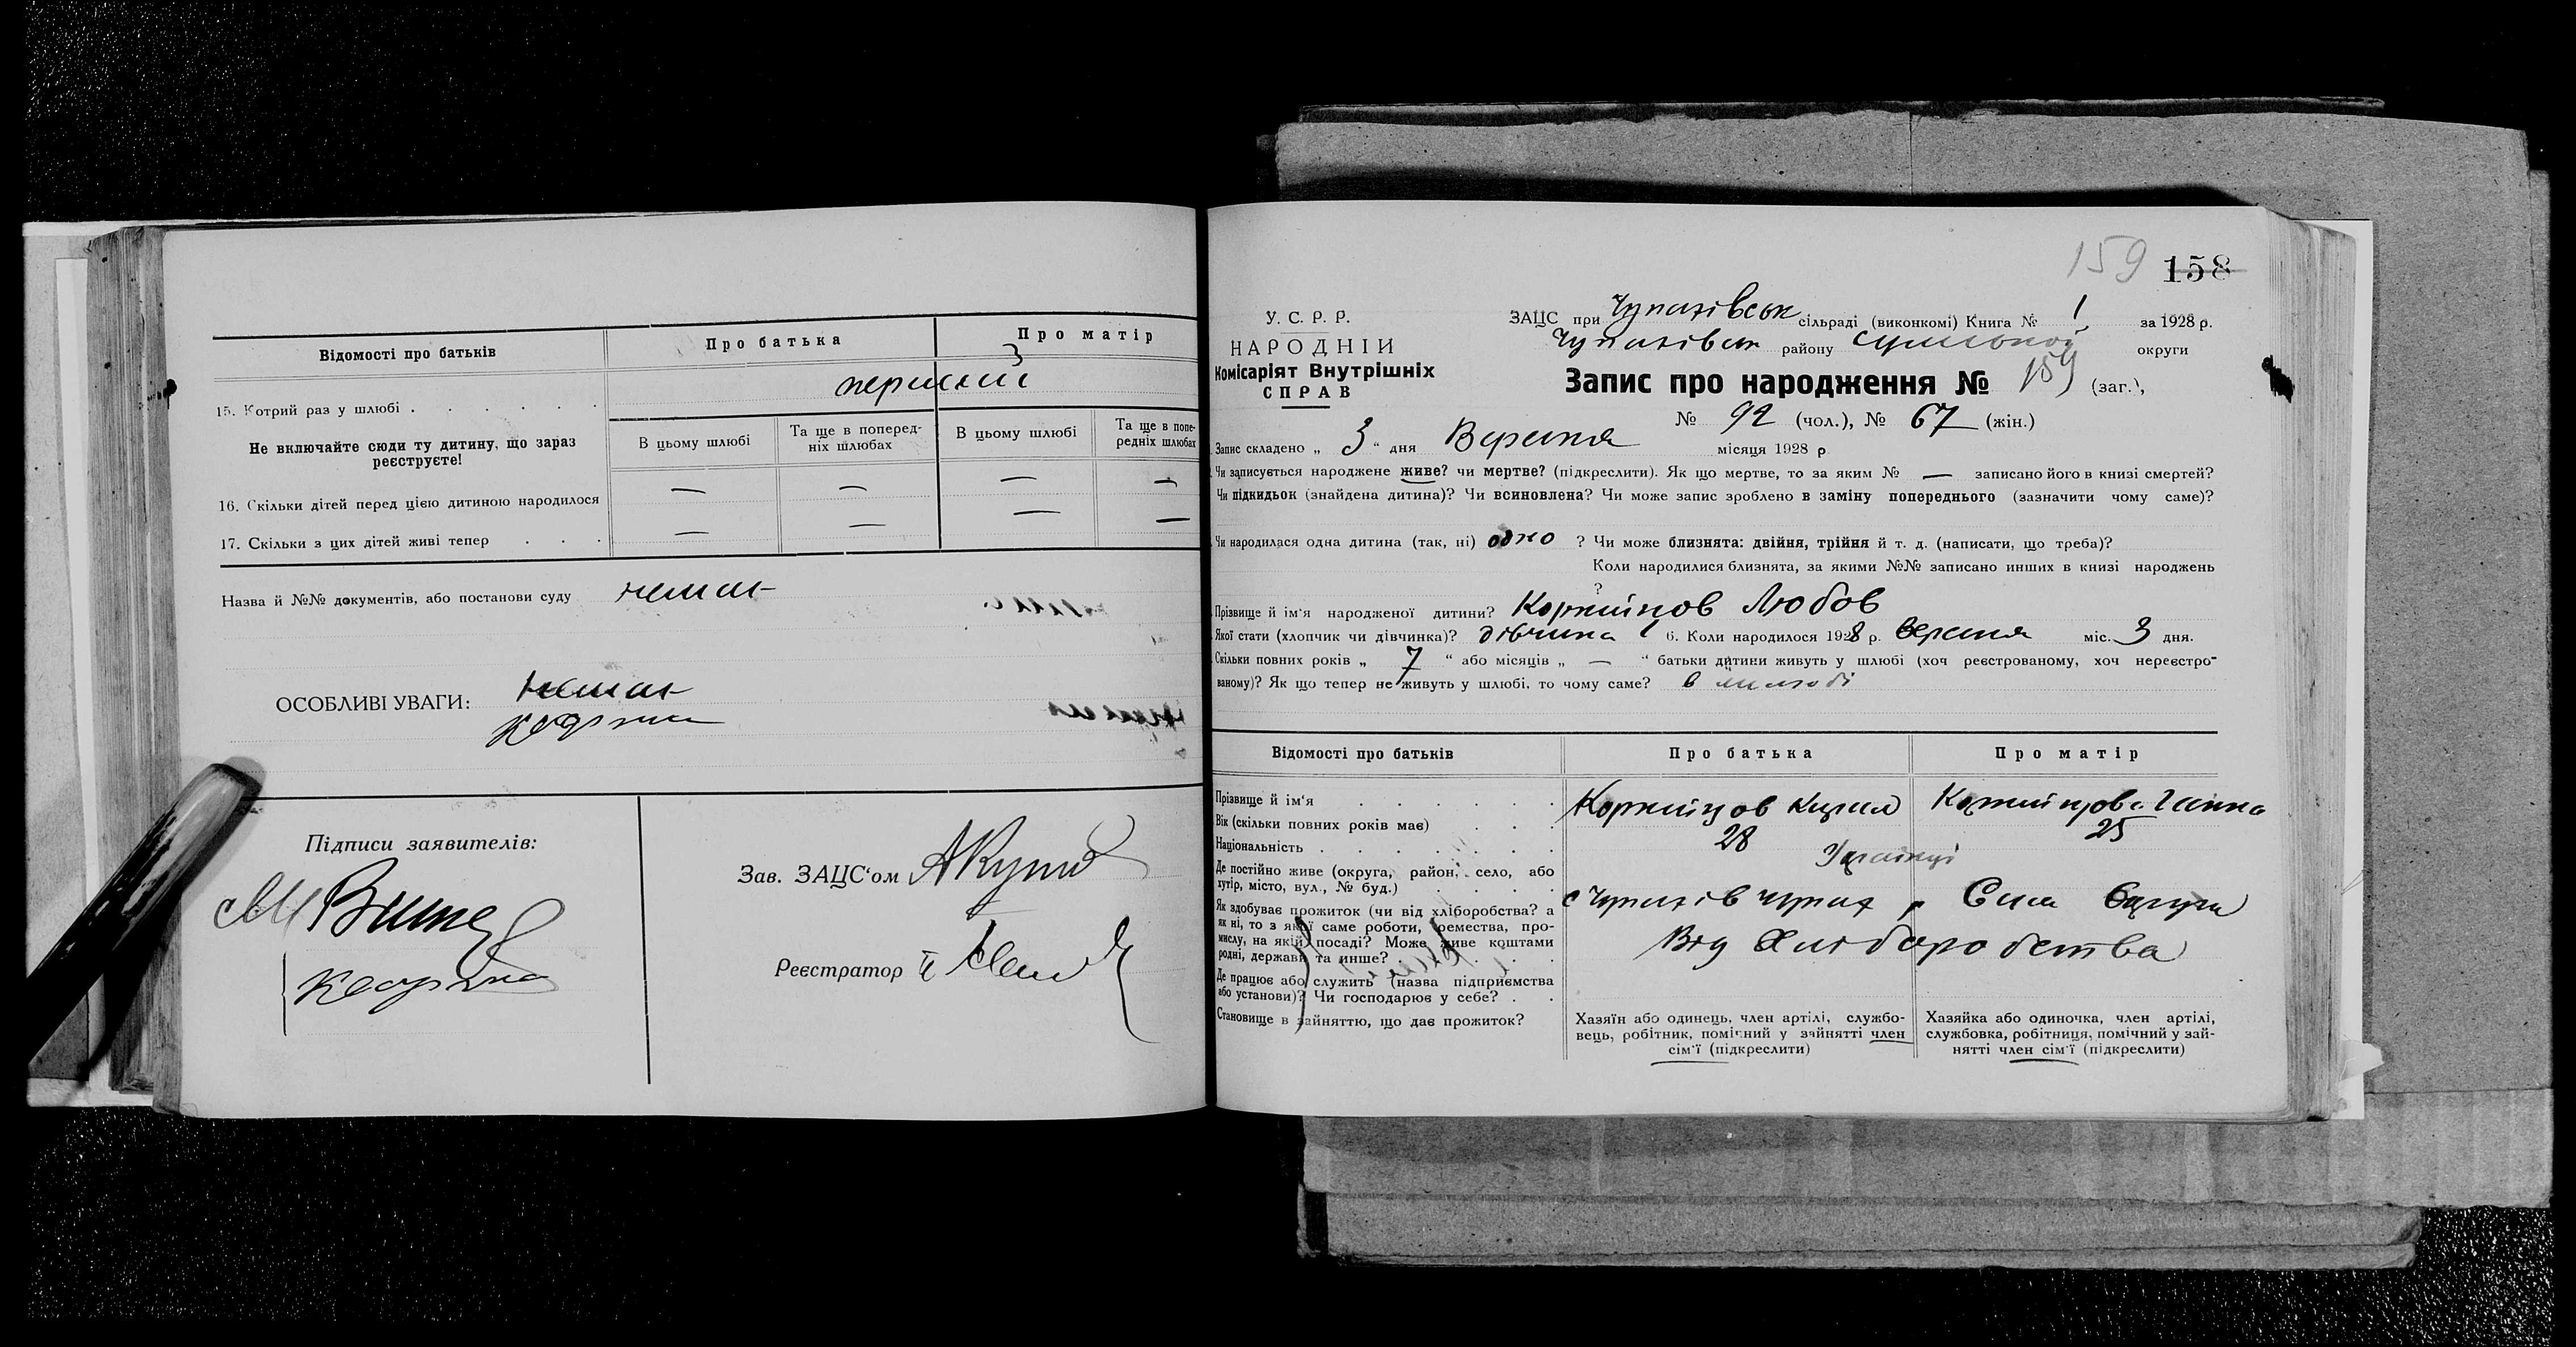 Відомості про батьків
Про батька
Про матір
15. Котрий раз у шлюбі
перший
Не включайте сюди ту дитину, що зараз реєструєте!
В цьому шлюбі
Та ще в поперед-
ніх шлюбах
В цьому шлюбі
Та ще в попе-
редніх шлюбах
16. Скільки дітей перед цією дитиною народилося
— — — —
17. Скільки з цих дітей живі тепер
— — — —
Назва й №№ документів, або постанови суду немає
ОСОБЛИВІ УВАГИ: немає
Підписи заявителів:
Зав. ЗАЦС'ом
Реєстратор
159 158
У. С. Р. Р.
НАРОДНІЙ
Комісаріят Внутрішніх
СПРАВ
ЗАЦС при Чупахівськ сільраді (виконкомі) Книга № 1 за 1928 р.
Чупахівськ району Сумської округи
Запис про народження № 159 (заг.),
№ 92 (чол.), № 67 (жін.)
Запис складено „ 3 “ дня Вересня місяця 1928 р
Чи записується народжене живе? чи мертве? (підкреслити). Як що мертве, то за яким № — записано його в книзі смертей?
Чи підкидьок (знайдена дитина)? Чи всиновлена? Чи може запис зроблено в заміну попереднього (зазначити чому саме)?
Чи народилася одна дитина (так, ні) одно ? Чи може близнята: двійня, трійня й т. д. (написати, що треба)?
Коли народилися близнята, за якими №№ записано инших в книзі народжень
?
Прізвище й ім'я народженої дитини? Любов
Якої стати (хлопчик чи дівчинка)? дівчина 6. Коли народилося 1928 р. вересня міс. 3 дня.
Скільки повних років „ 7 “ або місяців „ — “ батьки дитини живуть у шлюбі (хоч реєстрованому, хоч нереєстро-
ваному)? Як що тепер не живуть у шлюбі, то чому саме? в шлюбі
Відомості про батьків
Про батька
Про матір
Прізвище й ім'я
Ганна
Вік (скільки повних років має)
28
25
Національність
Українці
Де постійно живе (округа, район, село, або
хутір, місто, вул., № буд.)
Як здобуває прожиток (чи від хліборобства? а
як ні, то з якої саме роботи, ремества, про-
мислу, на якій посаді? Може живе коштами
родні, держави та инше?
Від Хліборобства
Де працює або служить (назва підприємства
або установи)? Чи господарює у себе?
Становище в зайняттю, що дає прожиток?
Хазяїн або одинець, член артілі, службо-
вець, робітник, помічний у зайнятті член
сім'ї (підкреслити)
Хазяйка або одиночка, член артілі,
службовка, робітниця, помічний у зай-
нятті член сім'ї (підкреслити)